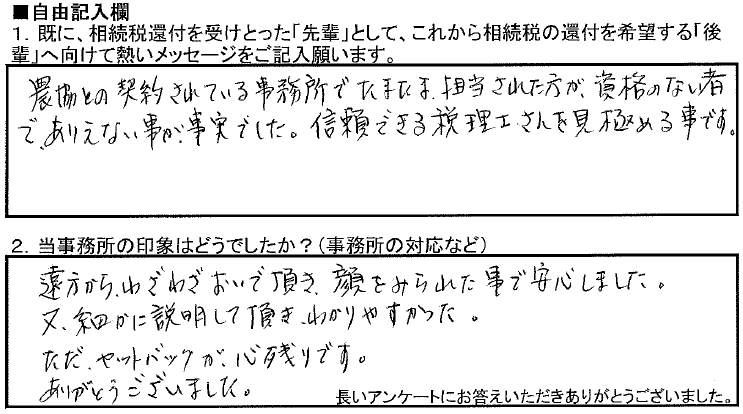 ■自由記入欄
1．既に、相続税還付を受けとった「先輩」として、これから相続税の還付を希望する「後
輩」へ向けて熱いメッセージをご記入願います。
農協との契約されている事務所でたまたま担当された方が、資格のない者
で、ありえない事が事実でした。信頼できる税理士さんを見極める事です。
2．当事務所の印象はどうでしたか？（事務所の対応など）
遠方から、わざわざおいで頂き、顔をみられた事で安心しました。
又、細かに説明して頂き、わかりやすかった。
ただ、セットバックが、心残りです。
ありがとうございました。
長いアンケートにお答えいただきありがとうございました。